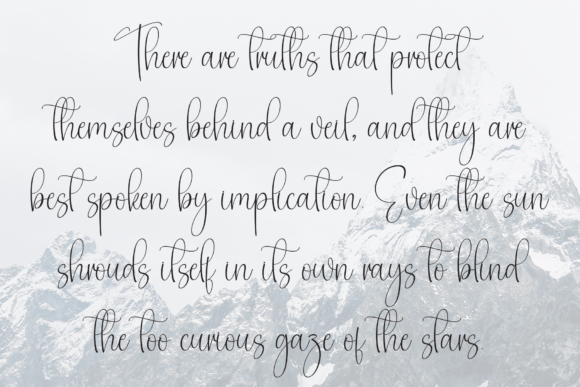 There are truths that protect
themselves behind a veil, and they are
best spoken by implication. Even the sun
shrouds itself in its own rays to blind
the too curious gaze of the stars.